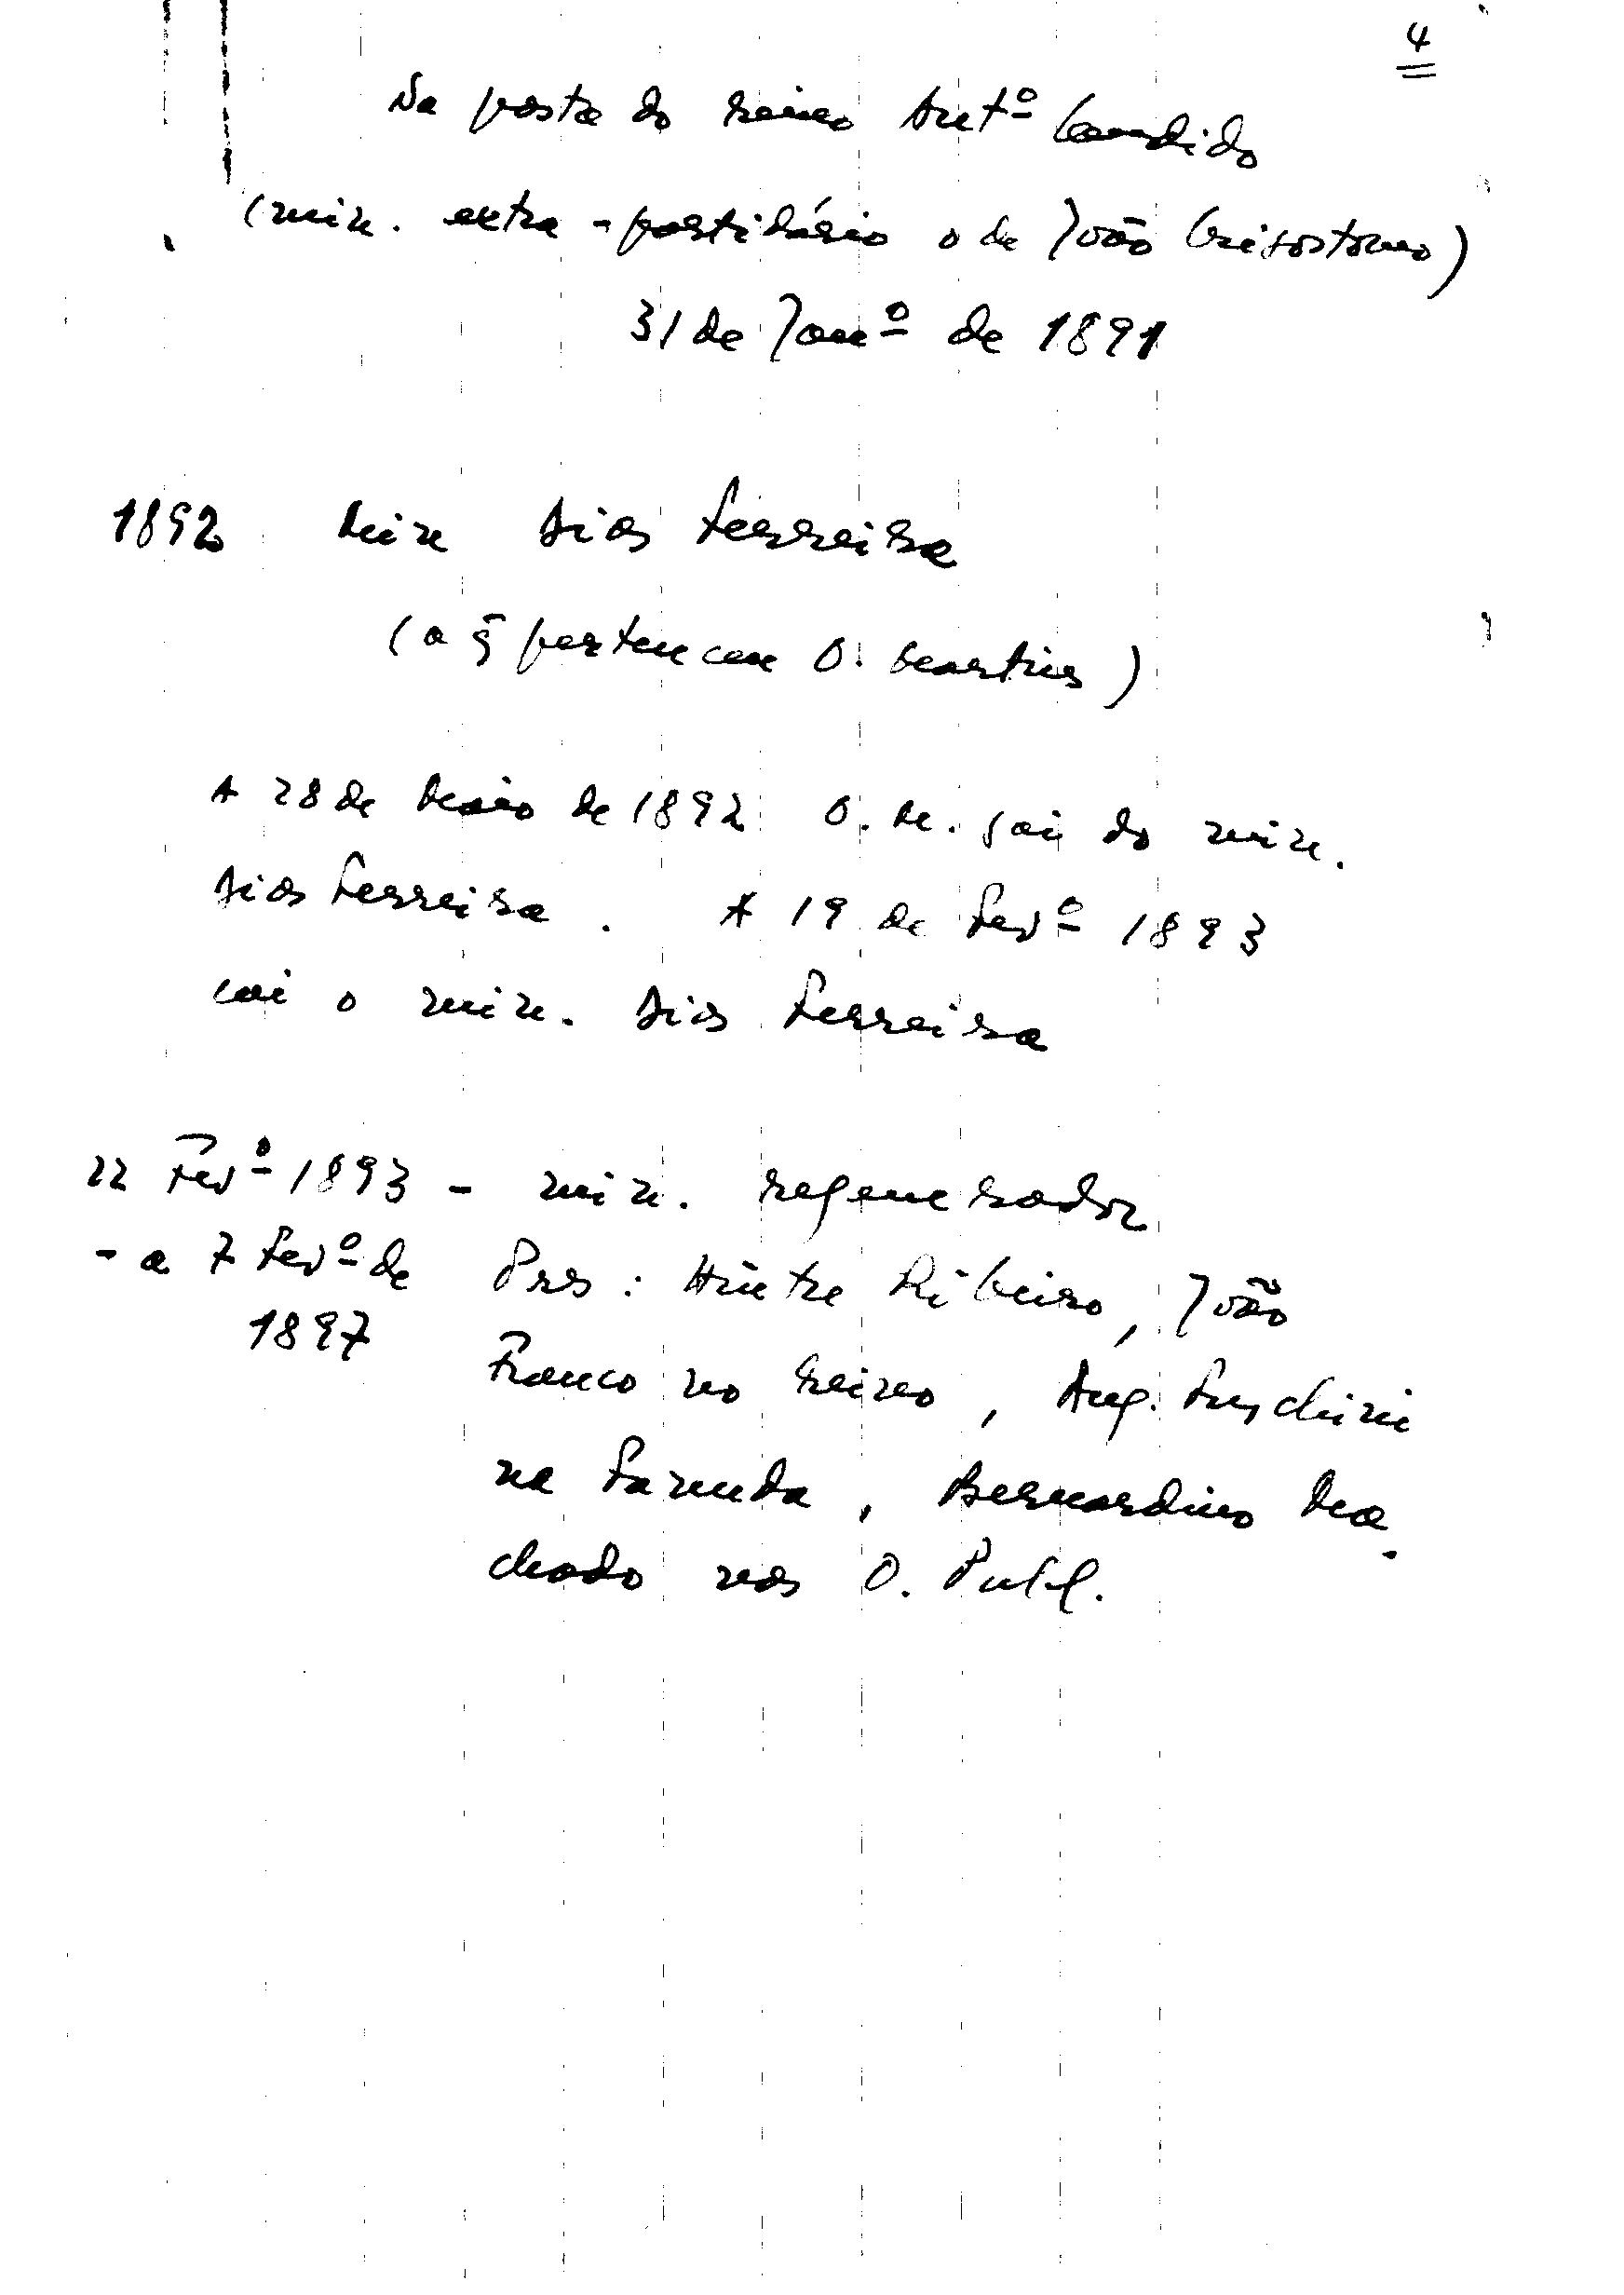 4
Na pasta do reino Antº Candido
(min. extra-partidário o de João Crisóstomo)
31 de Janº de 1891
1892 Min Dias Ferreira
(a q̃ pertenceu O. Martins)
A 28 de Maio de 1892 O. M. sai do min.
Dias Ferreira. A 19 de Fevº 1893
cai o min. Dias Ferreira
22 Fevº 1893 - min. regenerador
- a 7 Fevº de Pres: Hintze Ribeiro, João
1897 Franco no Reino, Aug. Fuschini
na Fazenda, Bernardino Ma-
chado nas O. Publ.